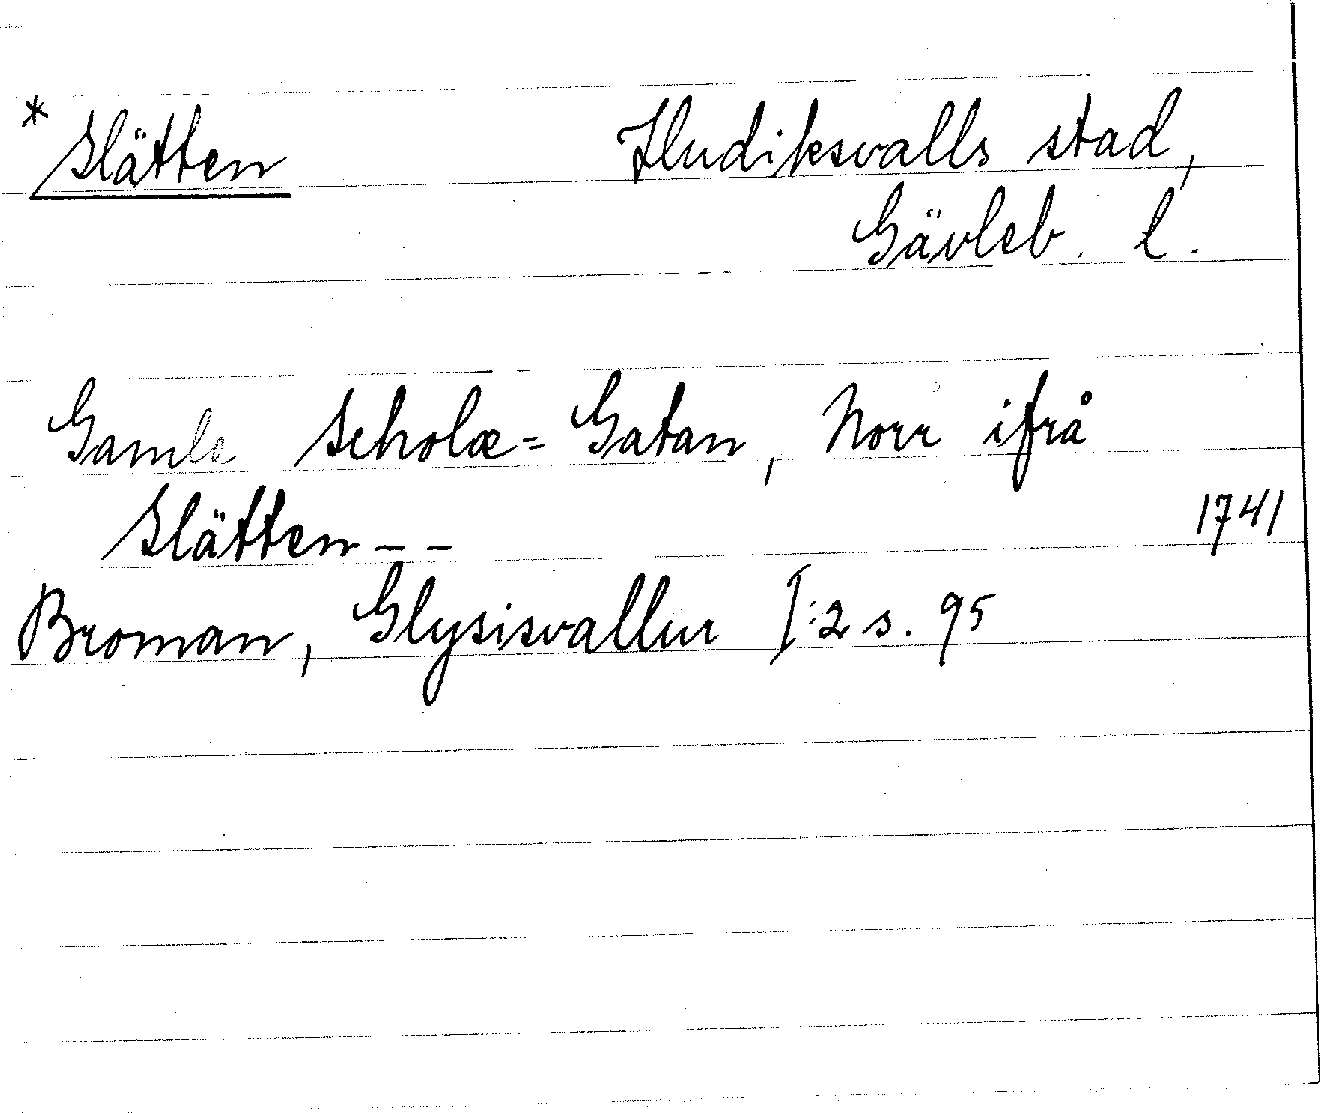 * Slätten Hudiksvalls stad,
Gävleb. l.
Gamla Scholæ= Gatan, Norr ifrå
Slätten – –
1741
Broman, Glysisvallur I:2 s. 95